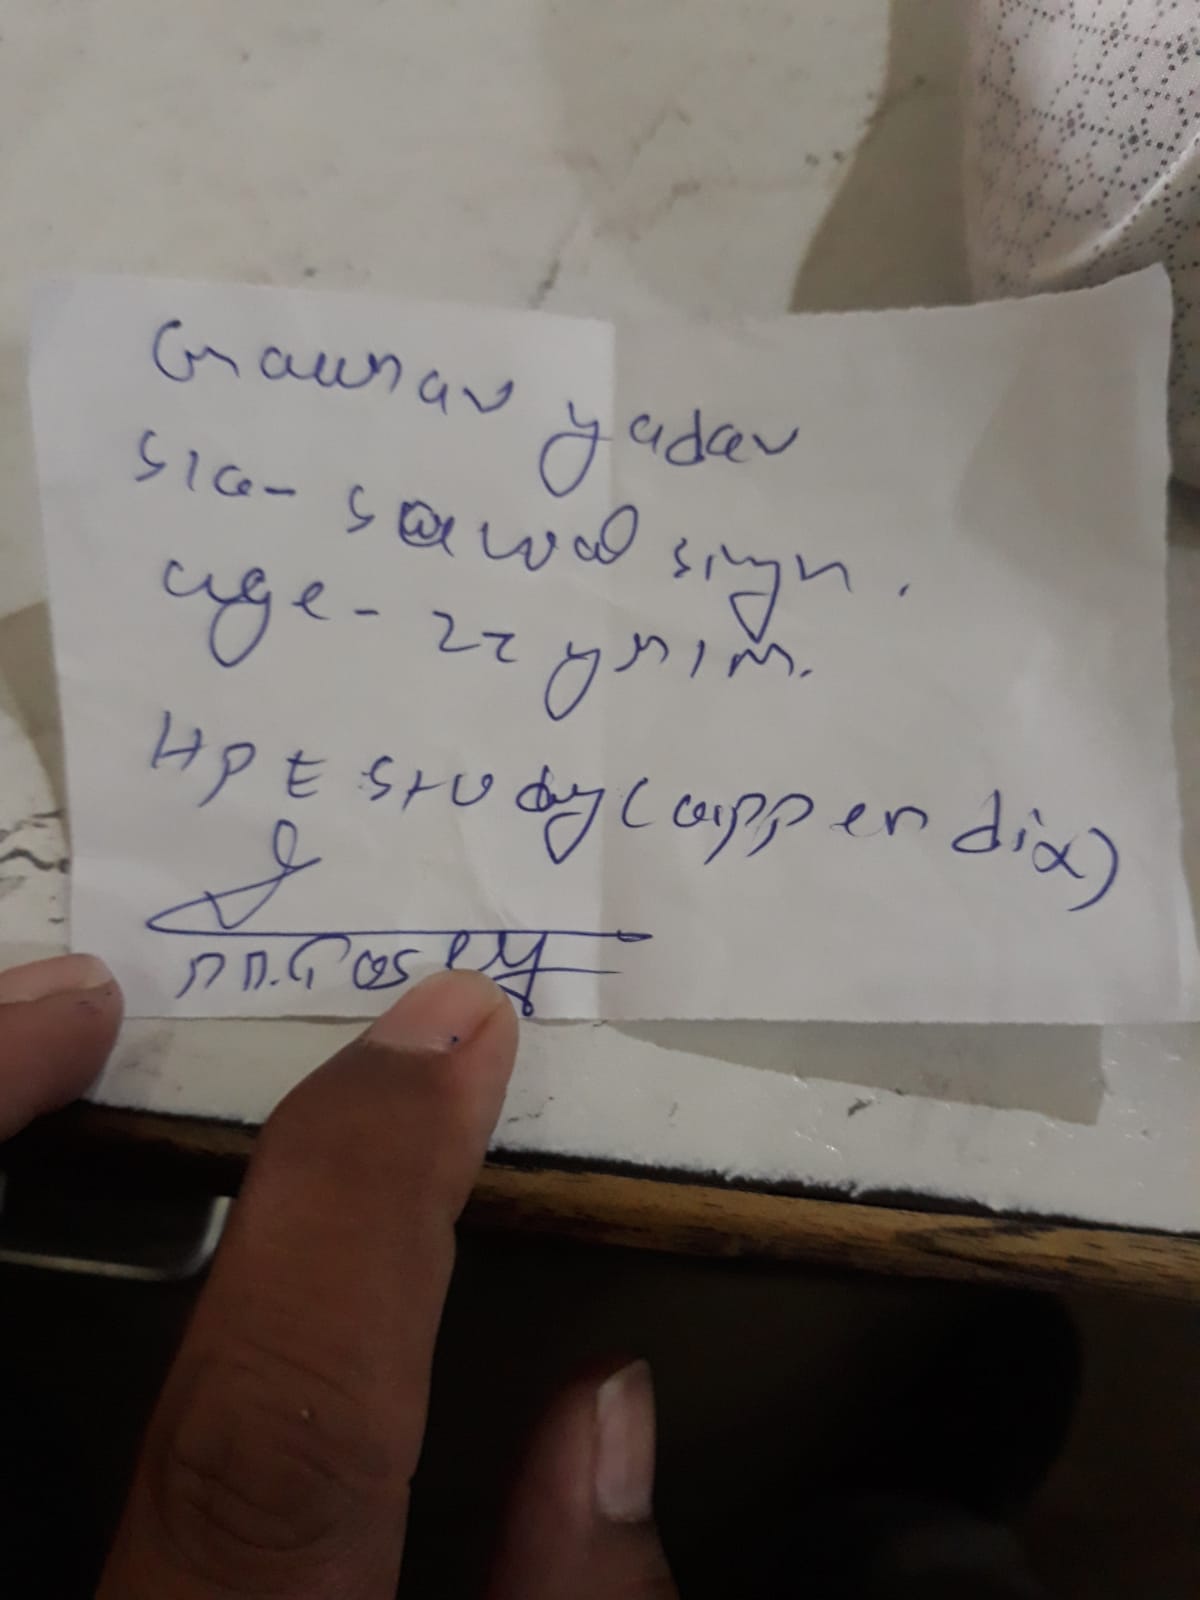 Gaurav yadav
S/o- sawal singn.
age- 22 yr/m.
HPE study (appendix)